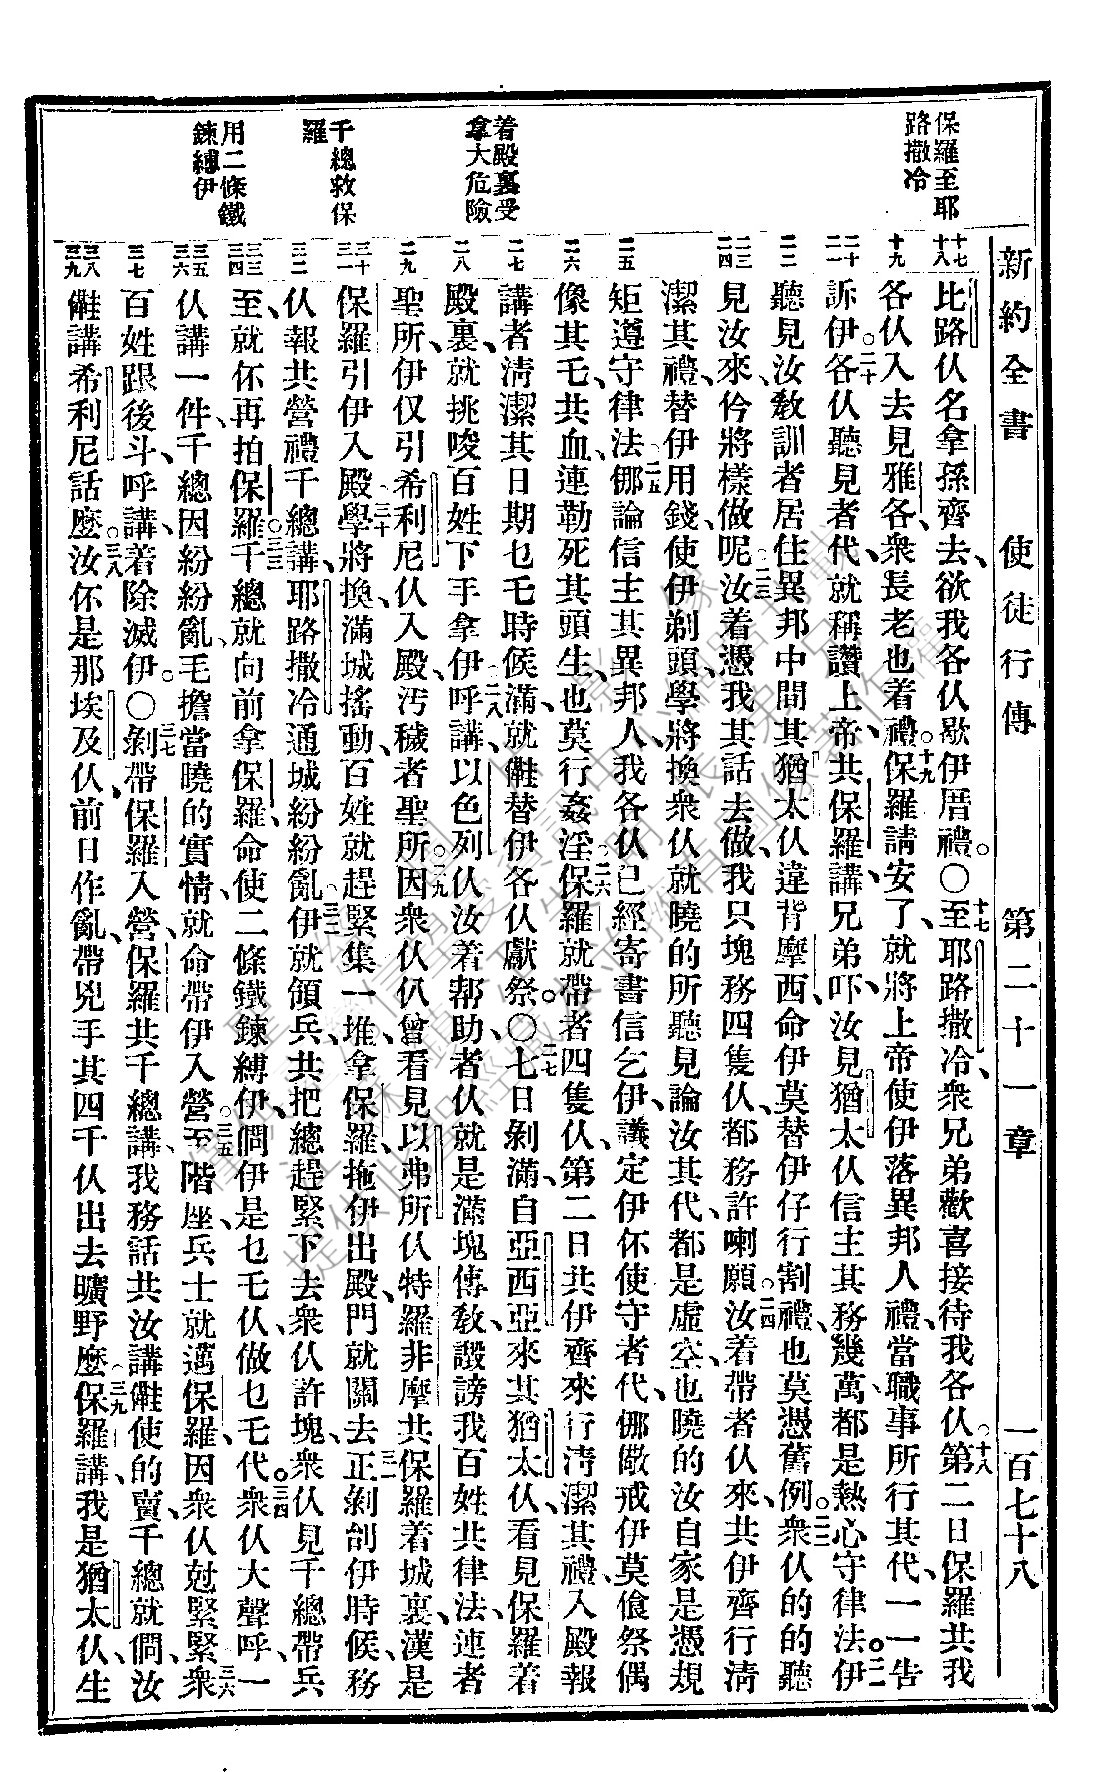 新約全書 使徒行傳 第二十一章 一百七十八
保羅至耶
路撒冷
着殿裏受
拿大危險
千總救保
羅
用二條鐵
鍊縛伊
十七
十八
十九
二十
二一
二二
二三
二四
二五
二六
二七
二八
二九
三十
三一
三二
三三
三四
三五
三六
三七
三八
三九
比路仈名拿孫齊去、欲我各仈歇伊厝禮。〇十七至耶路撒冷、衆兄弟歡喜接待我各仈。十八第二日、保羅共我
各仈入去見雅各、衆長老也着禮。十九保羅請安了、就將上帝使伊落異邦人禮、當職事所行其代、一一告
訴伊。二十各仈聽見者代、就稱讚上帝、共保羅講、兄弟吓、汝見猶太仈信主其務幾萬、都是熱心守律法、伊
聽見汝教訓者居住異邦中間其猶太仈違背摩西、命伊莫替伊仔行割禮、也莫憑舊例。二二衆仈的的聽
見汝來、仱將樣做呢。二三汝着憑我其話去做、我只塊務四隻仈、都務許喇願。二四汝着帶者仈來、共伊齊行淸
潔其禮、替伊用錢、使伊剃頭、學將換衆仈就曉的所聽見論汝其代、都是虛空、也曉的汝自家是憑規
矩遵守律法。二五㑚論信主其異邦人、我各仈已經寄書信乞伊、議定伊伓使守者代、㑚儆戒伊莫飡祭偶
像其乇、共血、連勒死其頭生、也莫行姦淫。二六保羅就帶者四隻仈、第二日共伊齊來行淸潔其禮、入殿報
講者淸潔其日期乜乇時候滿、就㒀替伊各仈獻祭。〇二七七日剝滿、自亞西亞來其猶太仈、看見保羅着
殿裏、就挑唆百姓下手拿伊、二八呼講、以色列仈汝着帮助、者仈就是滿塊傳教、譭謗我百姓共律法、連者
聖所、伊仅引希利尼仈入殿、汚穢者聖所。二九因衆仈仈曾看見以弗所仈特羅非摩共保羅着城裏、漢是
保羅引伊入殿。三十學將換滿城搖動、百姓就趕緊集一堆、拿保羅、拖伊出殿、門就關去。三一正剝刣伊時候、務
仈報共營禮千總講、耶路撒冷通城紛紛亂。三二伊就領兵共把總趕緊下去衆仈許塊、衆仈見千總帶兵
至、就伓再拍保羅。三三千總就向前拿保羅、命使二條鐵鍊縛伊、㒋伊是乜乇仈、做乜乇代。三四衆仈大聲呼、一
仈講一件、千總因紛紛亂、毛擔當曉的實情、就命帶伊入營。三五至階座、兵士就邁保羅、因衆仈尅緊緊、三六衆
百姓跟後斗、呼講、着除滅伊。〇三七剝帶保羅入營、保羅共千總講、我務話共汝講㒀使的賣、千總就㒋、汝
㒀講希利尼話麽。三八汝伓是那埃及仈、前日作亂、帶兇手其四千仈出去曠野麽。三九保羅講、我是猶太仈、生